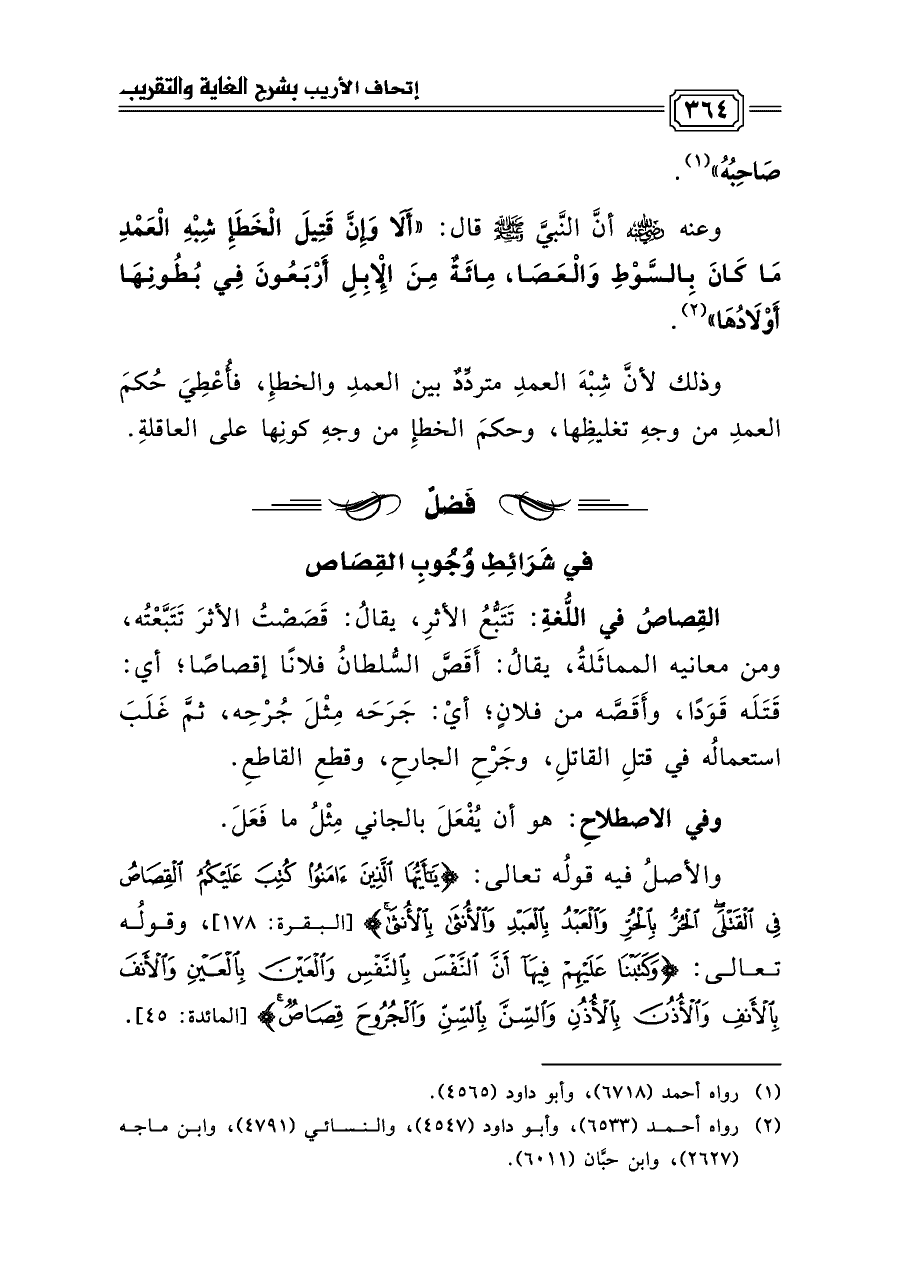 إتحاف الأريب بشرح الغاية والتقريب
٣٦٤
صَاحِبُهُ»(١).
وعنه رضي الله عنه أنَّ النَّبيَّ ﷺ قال: «أَلَا وَإِنَّ قَتِيلَ الْخَطَإِ شِبْهِ الْعَمْدِ
مَا كَانَ بِالسَّوْطِ وَالْعَصَا، مِائَةٌ مِنَ الْإِبِلِ أَرْبَعُونَ فِي بُطُونِهَا
أَوْلَادُهَا»(٢).
وذلك لأنَّ شِبْهَ العمدِ متردِّدٌ بين العمدِ والخطإِ، فأُعْطِيَ حُكمَ
العمدِ من وجهِ تغليظِها، وحكمَ الخطإِ من وجهِ كونِها على العاقلةِ.
فَصْلٌ
في شَرَائِطِ وُجُوبِ القِصَاص
القِصاصُ في اللُّغةِ: تَتَبُّعُ الأثرِ، يقالُ: قَصَصْتُ الأثرَ تَتَبَّعْتُه،
ومن معانيه المماثَلةُ، يقالُ: أَقَصَّ السُّلطانُ فلانًا إقصاصًا؛ أي:
قَتَلَه قَوَدًا، وأَقَصَّه من فلانٍ؛ أيْ: جَرَحَه مِثْلَ جُرْحِه، ثمَّ غَلَبَ
استعمالُه في قتلِ القاتلِ، وجَرْحِ الجارحِ، وقطعِ القاطعِ.
وفي الاصطلاحِ: هو أن يُفْعَلَ بالجاني مِثْلُ ما فَعَلَ.
والأصلُ فيه قولُه تعالى: ﴿يَٰٓأَيُّهَا ٱلَّذِينَ ءَامَنُوا۟ كُتِبَ عَلَيْكُمُ ٱلْقِصَاصُ
فِى ٱلْقَتْلَىۖ ٱلْحُرُّ بِٱلْحُرِّ وَٱلْعَبْدُ بِٱلْعَبْدِ وَٱلْأُنثَىٰ بِٱلْأُنثَىٰۚ﴾ [البقرة: ١٧٨]، وقولُه
تعالى: ﴿وَكَتَبْنَا عَلَيْهِمْ فِيهَآ أَنَّ ٱلنَّفْسَ بِٱلنَّفْسِ وَٱلْعَيْنَ بِٱلْعَيْنِ وَٱلْأَنفَ
بِٱلْأَنفِ وَٱلْأُذُنَ بِٱلْأُذُنِ وَٱلسِّنَّ بِٱلسِّنِّ وَٱلْجُرُوحَ قِصَاصٌۚ﴾ [المائدة: ٤٥].
(١) رواه أحمد (٦٧١٨)، وأبو داود (٤٥٦٥).
(٢) رواه أحمد (٦٥٣٣)، وأبو داود (٤٥٤٧)، والنسائي (٤٧٩١)، وابن ماجه
(٢٦٢٧)، وابن حبَّان (٦٠١١).